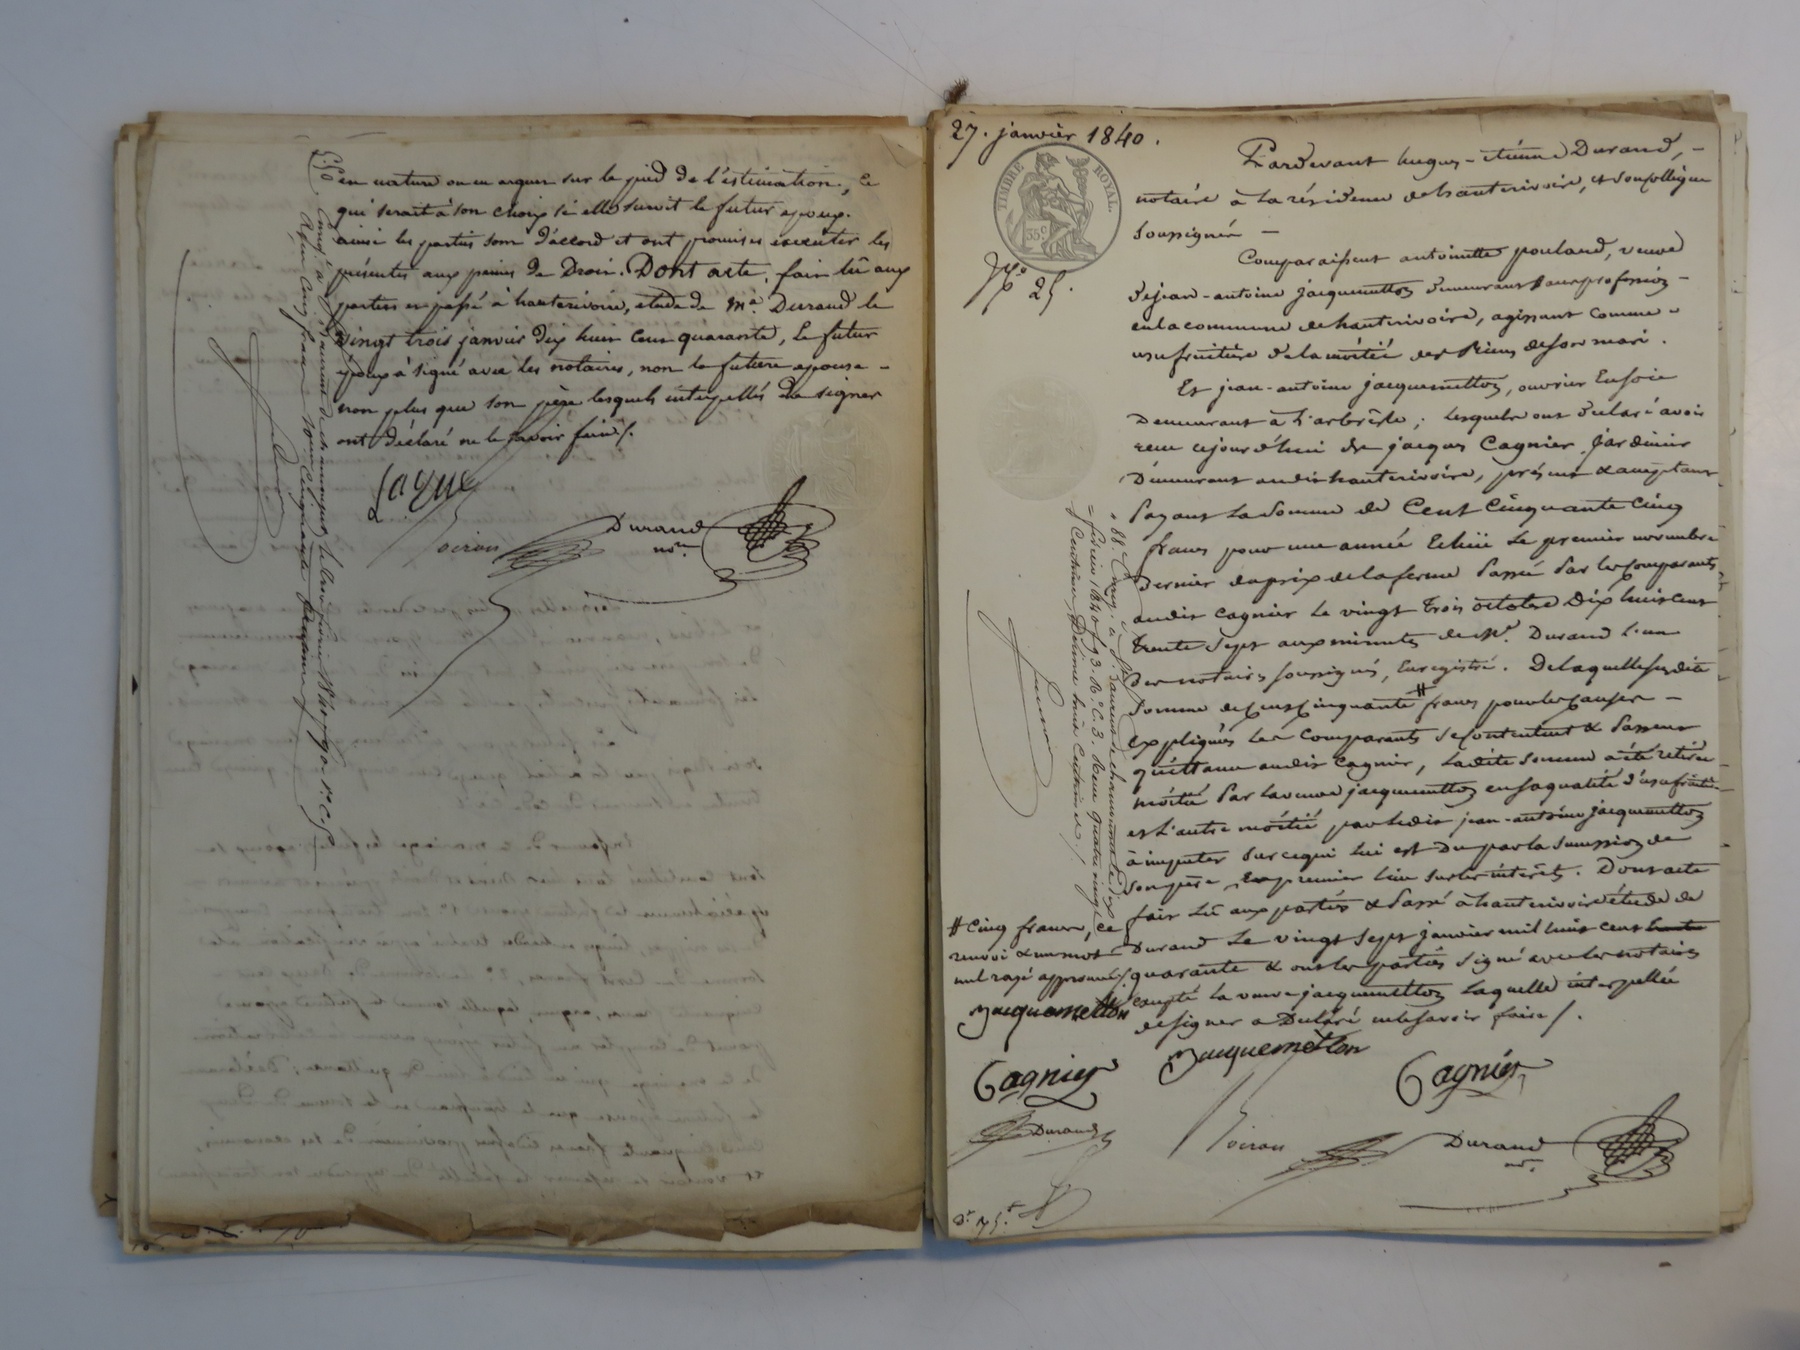 en nature ou en argent sur le pied de l'estimation, ce
qui serait à son choix si elle survit le futur epoux.
ainsi les parties sont d'accord et ont promis executer les
présentes aux peines de Droit. Dont acte, fait lû aux
parties et passé à hauterivoire, etude de Me. Durand le
vingt trois janvier dix huit cent quarante, le futur
époux à signé avec les notaires, non la future epouse -
non plus que son père lesquels interpellés de signer
ont déclaré ne le savoir faire /.
Durand
nore.
27. janvier 1840.
TIMBRE ROYAL.
35c
No. 25.
Pardevant hugues-étienne Durand, -
notaire à la résidence de hauterivoire, et son collègue
soussignés -
Comparaissent antoinette poulard, veuve
de jean-antoine jacquemetton demeurant sans profession -
en la commune de hauterivoire, agissant comme
usufruitière de la moitié des biens de son mari.
Et jean-antoine jacquemetton, ouvrier en soie
Demeurant à l'arbrêsle; lesquels ont déclaré avoir
reçu cejourd'hui de jacques Cagnier jardinier
Demeurant audit hauterivoire, présent & acceptant
payant la somme de Cent Cinquante Cinq
francs pour une année Echüe le premier novembre
Dernier du prix de la ferme passée par les comparants
audit Cagnier le vingt trois octobre Dix huit cent
trente sept aux minutes de Me. Durand l'un
des notaires soussignés, Enregistré. De laquelle susdite
somme de Cent Cinquante # francs pour les causes -
Expliquées les Comparants se contentent & passent
quittance audit Cagnier, ladite somme a été retirée
moitié par la veuve jacquemetton en sa qualité d'usufruitière
et l'autre moitié par ledit jean-antoine jacquemetton
à imputer sur ce qui lui est Du par la succession de
son père, En premier lieu sur les intérêts. Dont acte
fait lû aux parties & passé à hauterivoire étude de
Durand le vingt sept janvier mil huit cent trente
quarante & ont les parties signé avec les notaires
excepté la veuve jacquemetton laquelle interpellée
de signer a Déclaré ne le savoir faire /.
# Cinq francs, ce
renvoi & un mot
nul rayé approuvés /.
Jacquemetton
Cagnier
Durand
Jacquemetton
Cagnier
Durand
nre.